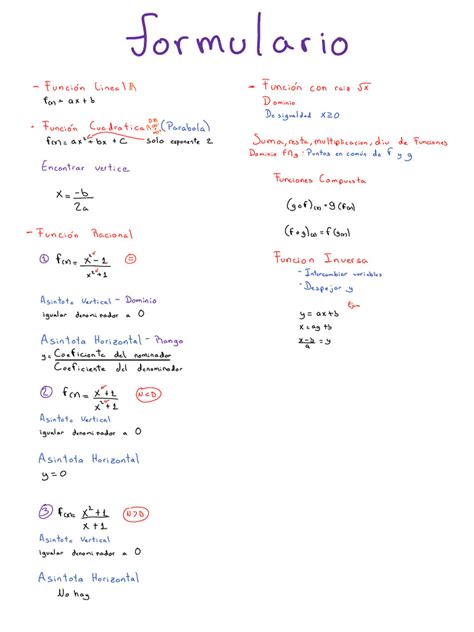 formulario
- Función Lineal R
f(x) = ax + b
- Función Cuadratica (Parabola)
f(x) = ax² + bx + C solo exponente 2
Encontrar vertice
x = -b / 2a
- Función Racional
① f(x) = x² - 1 / x² + 1 =
Asintota Vertical - Dominio
igualar denominador a 0
Asintota Horizontal - Rango
y = Coeficiente del nominador / Coeficiente del denominador
② f(x) = x + 1 / x² + 1 N<D
Asintota Vertical
igualar denominador a 0
Asintota Horizontal
y = 0
③ f(x) = x² + 1 / x + 1 N>D
Asintota Vertical
igualar denominador a 0
Asintota Horizontal
No hay
- Función con raiz √x
Dominio
Desigualdad x≥0
Suma, resta, multiplicacion, div de Funciones
Dominio f∩g - Puntos en común de f y g
Funciones Compuesta
(g∘f)(x) = g(f(x))
(f∘g)(x) = f(g(x))
Funcion Inversa
- Intercambiar variables
- Despejar y
Ejm
y = ax + b
x = ay + b
x - b / a = y